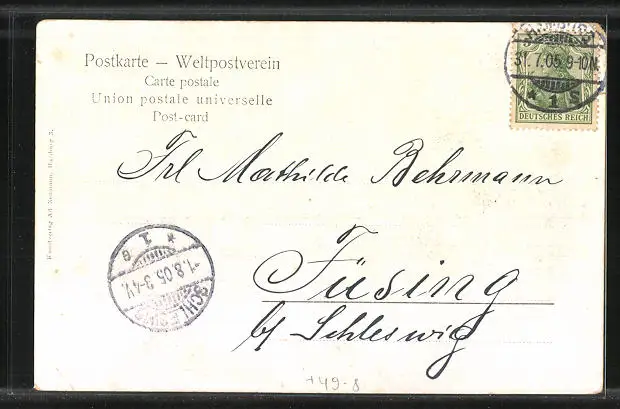 Postkarte — Weltpostverein
Carte postale
Union postale universelle
Post-card
31.7.05 9-10N.
* 1 S
DEUTSCHES REICH
Frl Mathilde Behrmann
Füsing
b/ Schleswig
* 1 e
-1.8.05. 3-4V.
SCHLESWIG
+49-8